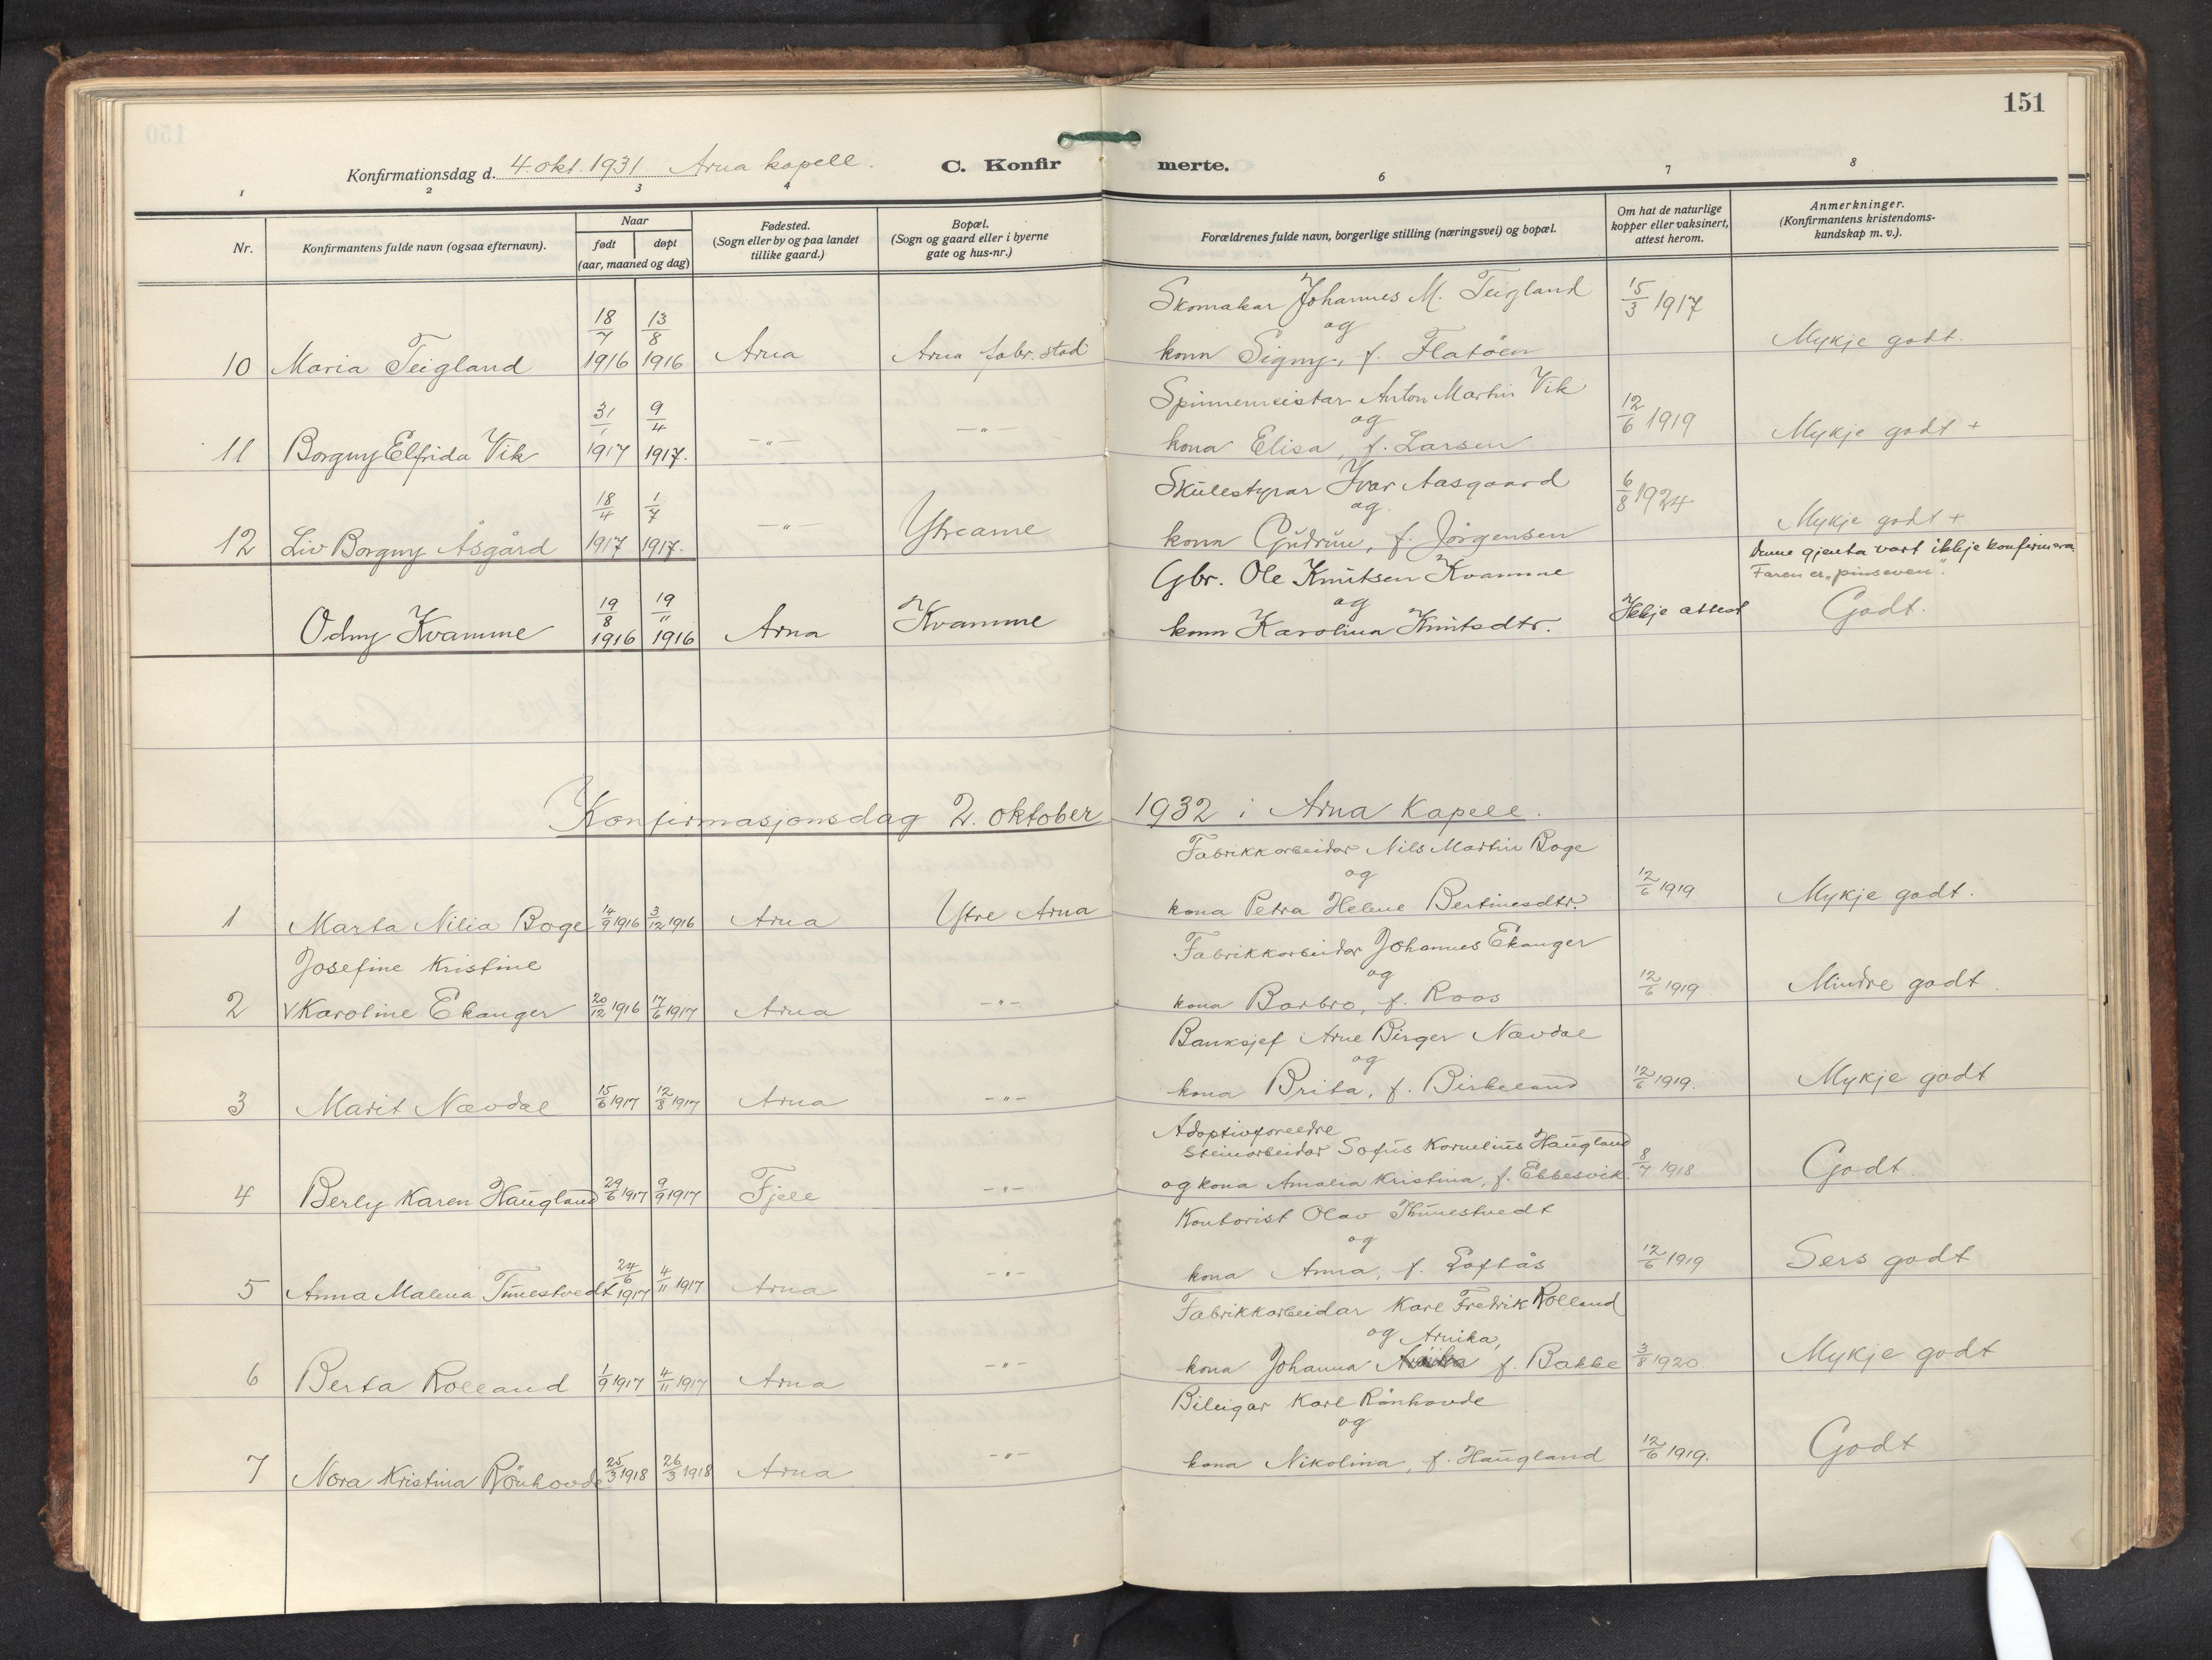 151
Konfirmationsdag d. 4. okt. 1931 Arna kapell.
C. Konfirmerte.
1 2 3 4 6 7 8
Nr.
Konfirmantens fulde navn (ogsaa efternavn).
Naar
født døpt
(aar, maaned og dag)
Fødested.
(Sogn eller by og paa landet
tillike gaard.)
Bopæl.
(Sogn og gaard eller i byerne
gate og hus-nr.)
Forældrenes fulde navn, borgerlige stilling (næringsvei) og bopæl.
Om hat de naturlige
kopper eller vaksinert,
attest herom.
Anmerkninger.
(Konfirmantens kristendoms-
kundskap m. v.).
Skomakar Johannes M. Teigland
og
10 Maria Teigland 18/7 1916 13/8 1916 Arna Arna fabr. stad kona Signy, f. Flatöen 15/3 1917 Mykje godt.
Spinnemeistar Anton Martin Vik
og
11 Borgny Elfrida Vik 31/1 1917 9/4 1917. -"- -"- kona Elisa, f. Larsen 12/6 1919 Mykje godt +
Skulestyrar Ivar Aasgaard
og
12 Liv Borgny Åsgård 18/4 1917 1/7 1917. -"- Ytrearne kona Gudrun, f. Jörgensen 6/8 1924 Mykje godt +
Denne gjenta vart ikkje konfirmera.
Faren er "pinseven".
Gbr. Ole Knutsen Kvamme
og
Odny Kvamme 19/8 1916 19/11 1916 Arna Kvamme kona Karolina Knutsdtr. Ikkje attest Godt.
Konfirmasjonsdag 2. oktober 1932 i Arna Kapell.
Fabrikkarbeidar Nils Martin Boge
og
1 Marta Nilia Boge 14/9 1916 3/12 1916 Arna Ytre Arna kona Petra Helene Bertinesdtr. 12/6 1919 Mykje godt.
Josefine Kristine
Fabrikkarbeidar Johannes Ekanger
og
2 √Karoline Ekanger 20/12 1916 17/6 1917 Arna -"- kona Barbro, f. Roos 12/6 1919 Mindre godt
Banksjef Arne Birger Nævdal
og
3 Marit Nævdal 15/6 1917 12/8 1917 Arna -"- kona Brita, f. Birkeland 12/6 1919. Mykje godt
Adoptivforeldre
Steinarbeidar Sofus Kornelius Haugland
4 Berly Karen Haugland 29/6 1917 9/9 1917 Fjell -"- og kona Amalia Kristina, f. Ebbesvik. 8/7 1918 Godt.
Kontorist Olav Thunestvedt
og
5 Anna Malena Tunestvedt 24/6 1917 4/11 1917 Arna -"- kona Anna, f. Loftås 12/6 1919 Sers godt
Fabrikkarbeidar Karl Fredrik Rolland
og Arnika,
6 Berta Rolland 1/9 1917 4/11 1917 Arna -"- kona Johanna f. Bakke 3/8 1920. Mykje godt
Bileigar Karl Rönhovde
og
7 Nora Kristina Rönhovde 25/3 1918 26/3 1918 Arna -"- kona Nikolina, f. Haugland 12/6 1919. Godt